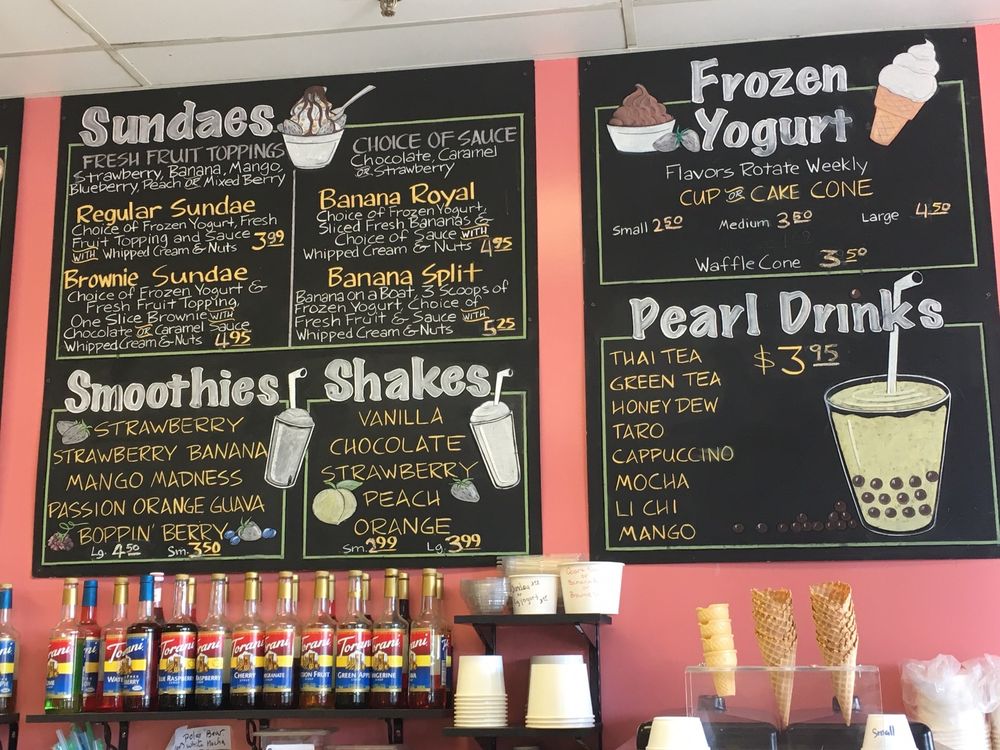 Sundaes
FRESH FRUIT TOPPINGS
Strawberry, Banana, Mango,
Blueberry, Peach OR Mixed Berry
Regular Sundae
Choice of Frozen Yogurt, Fresh
Fruit Topping and Sauce
WITH Whipped Cream & Nuts 3.99
Brownie Sundae
Choice of Frozen Yogurt &
Fresh Fruit Topping,
One Slice Brownie WITH
Chocolate OR Caramel Sauce
Whipped Cream & Nuts 4.95
CHOICE OF SAUCE
Chocolate, Caramel
OR Strawberry
Banana Royal
Choice of Frozen Yogurt,
Sliced Fresh Bananas &
Choice of Sauce WITH
Whipped Cream & Nuts 4.95
Banana Split
Banana on a Boat, 3 Scoops of
Frozen Yogurt, Choice of
Fresh Fruit & Sauce WITH
Whipped Cream & Nuts 5.25
Smoothies
STRAWBERRY
STRAWBERRY BANANA
MANGO MADNESS
PASSION ORANGE GUAVA
BOPPIN' BERRY
Lg. 4.50 Sm. 3.50
Shakes
VANILLA
CHOCOLATE
STRAWBERRY
PEACH
ORANGE
Sm. 2.99 Lg. 3.99
Frozen
Yogurt
Flavors Rotate Weekly
CUP OR CAKE CONE
Small 2.50 Medium 3.50 Large 4.50
Waffle Cone 3.50
Pearl Drinks
THAI TEA $3.95
GREEN TEA
HONEYDEW
TARO
CAPPUCCINO
MOCHA
LI CHI
MANGO
Torani
Torani
Torani
Torani
Torani
Torani
Torani
Torani
Torani
Torani
BLUE RASPBERRY
CHERRY
GREEN APPLE
Polar Bear
White Mocha
Small